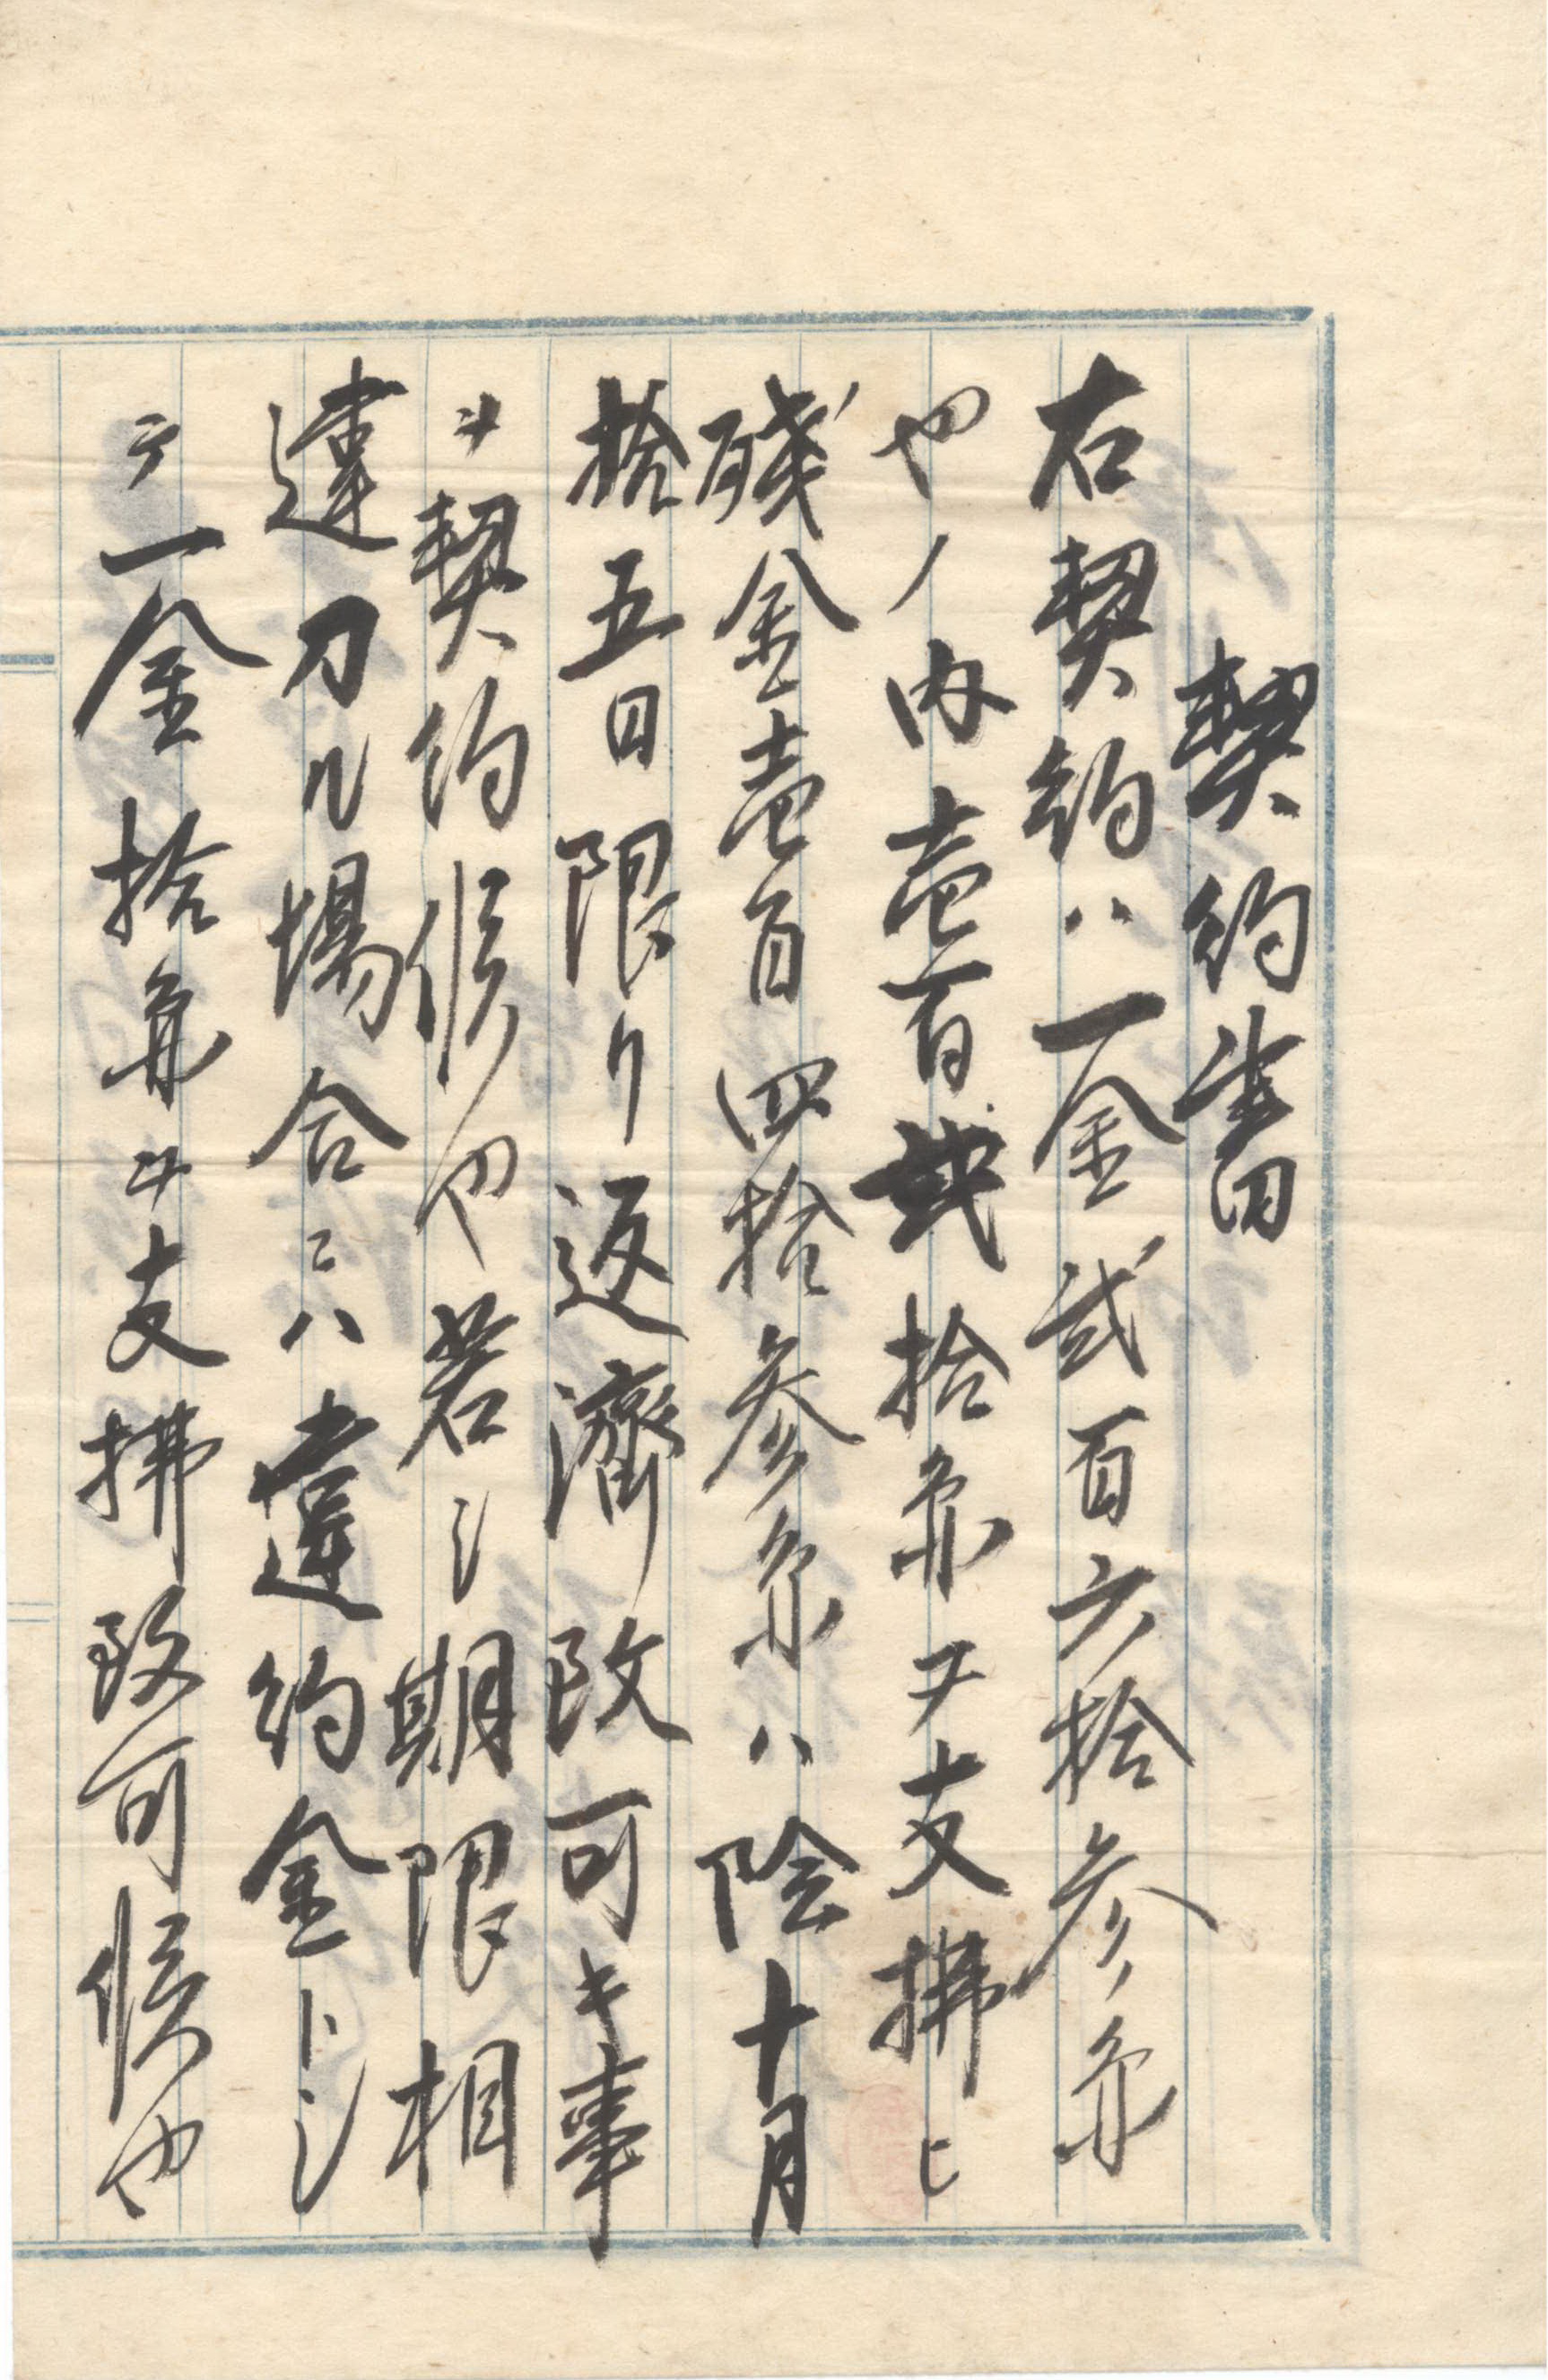 契約書
右契約ハ一金弐百六拾参円
也ノ内壱百弐拾円ヲ支拂ヒ
残金壱百四拾参円ハ陰十月
拾五日限リ返済致可キ事
ヲ契約候也若シ期限相
違タル場合ニハ違約金トシ
テ一金拾円ヲ支拂致可候也